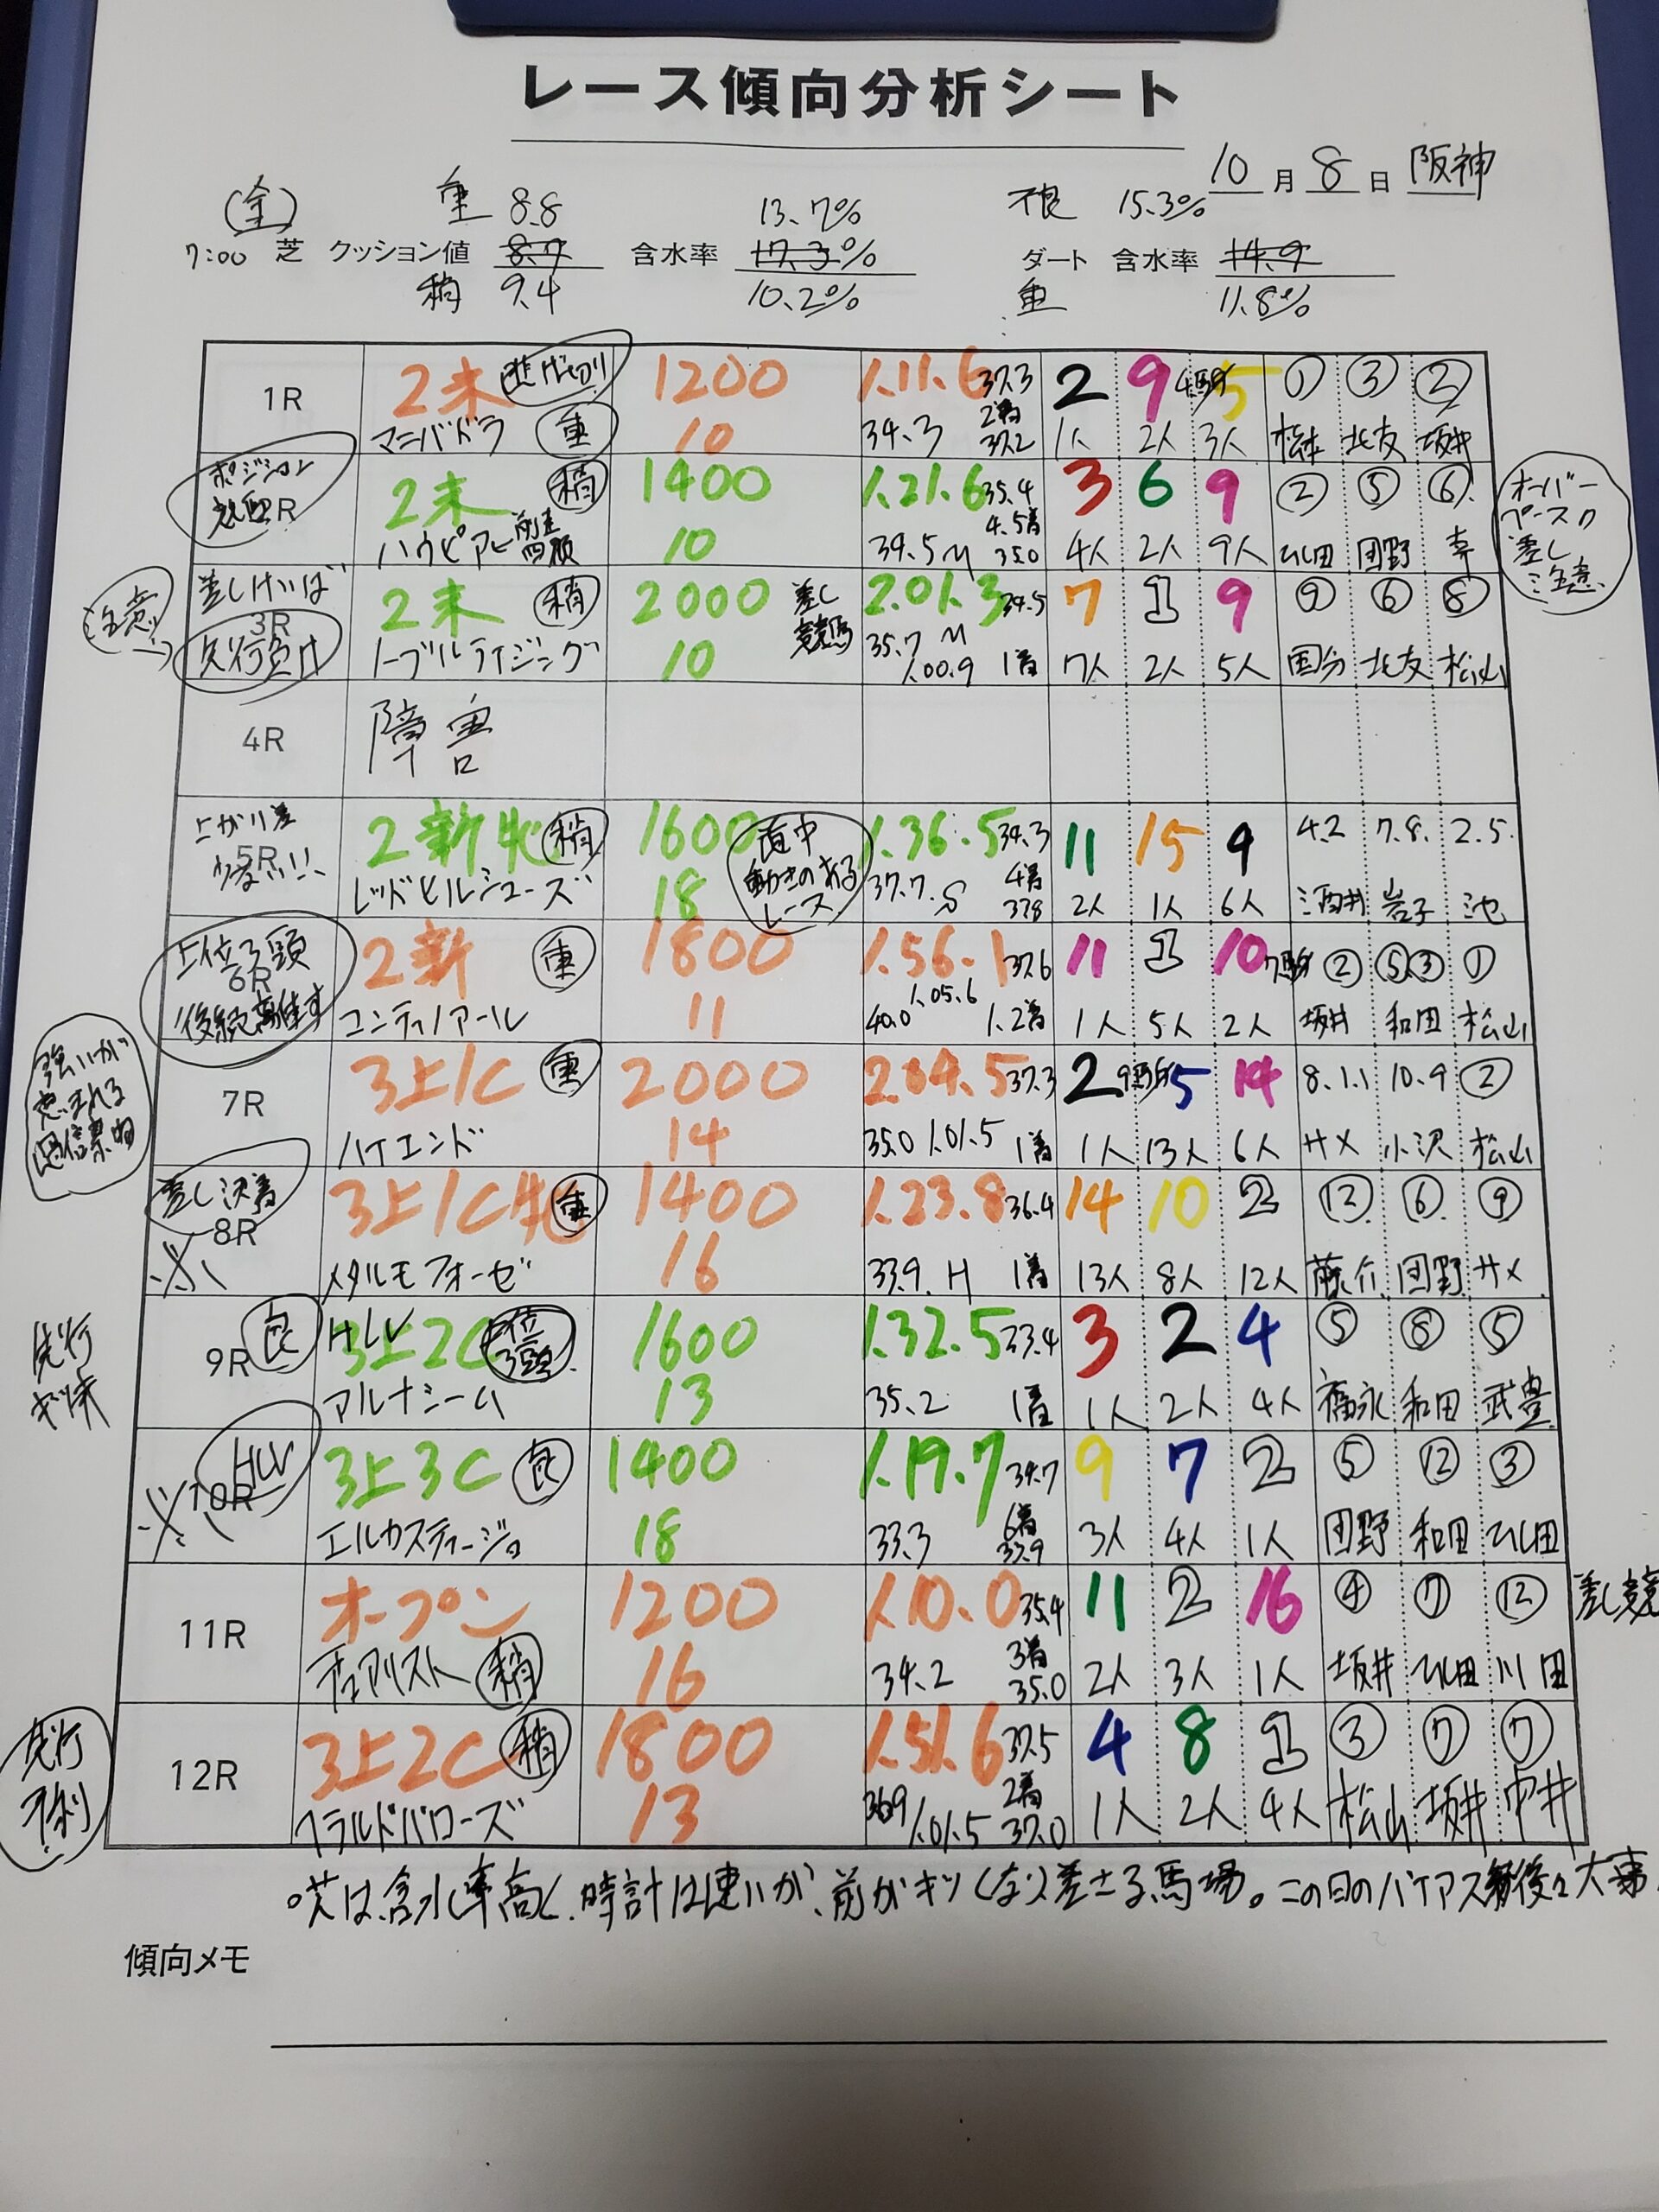 レース傾向分析シート
10月8日 阪神
(金) 重 8.8 13.7% 不良 15.3%
7:00 芝 クッション値 8.7 含水率 17.3% ダート 含水率 14.9
稍 9.4 10.2% 重 11.8%
1R 2未 逃げ切り 1200 1.11.6 37.3 2 9 4馬身 5 ① ③ ②
マニバドラ 重 10 34.3 2着 37.2 1人 2人 3人 松本 北友 坂井
ポジション
R 2未 稍 1400 1.21.6 35.4 3 6 9 ② ⑤ ⑥
ハウピアヒ 10 34.5 M 4.5着 35.0 4人 2人 9人 団野 幸
オーバー
ペースの
差し
注意
注意
差しけいば
3R 2未 稍 2000 差し競馬 2.01.3 34.5 7 1 9 ⑨ ⑥ ⑧
先行負け ノーブルライジング 10 35.7 M 1.00.9 1着 7人 2人 5人 国分 北友 松山
4R 障害
上がり差
5R 2新牝 稍 1600 1.36.5 34.3 11 15 4 4.2 7.8. 2.5.
レッドヒルシューズ 18 37.7.S 4着 37.8 2人 1人 6人 酒井 岩子 池
道中
動きのある
レース
上位3頭
6R 2新 重 1800 1.56.1 37.6 11 1 10 7馬身 ② ⑤③ ①
後続離す コンティノアール 11 40.0 1.05.6 1.2着 1人 5人 2人 坂井 和田 松山
強いが
恵まれる
過信禁物
7R 3上1C 重 2000 2.04.5 37.3 2 9馬身 5 14 8.1.1 10.9 ②
ハイエンド 14 35.0 1.01.5 1着 1人 13人 6人 サメ 小沢 松山
差し決着
8R 3上1C牝 重 1400 1.23.8 36.4 14 10 2 ⑫ ⑥ ⑨
メタルモフォーゼ 16 33.9. H 1着 13人 8人 12人 藤介 団野 サメ
先行
9R 良 HLV 3上2C 上位3頭 1600 1.32.5 33.4 3 2 4 ⑤ ⑧ ⑤
アルナシーム 13 35.2 1着 1人 2人 4人 福永 和田 武豊
HLV
10R 3上3C 良 1400 1.19.7 34.7 9 7 2 ⑤ ⑫ ③
エルカスティージョ 18 33.3 6着 33.9 3人 4人 1人 団野 和田
11R オープン 1200 1.10.0 35.4 11 2 16 ④ ⑦ ⑫ 差し競
デュアリスト 稍 16 34.2 3着 35.0 2人 3人 1人 坂井 川田
先行
有利
12R 3上2C 稍 1800 1.51.6 37.5 4 8 1 ③ ⑦ ⑦
ヘラルドバローズ 13 36.9 1.01.5 2着 37.0 1人 2人 4人 松山 坂井 中井
○芝は、含水率高く、時計は速いが、前がキツくなり差さる馬場。この日のバイアス後々大事
傾向メモ